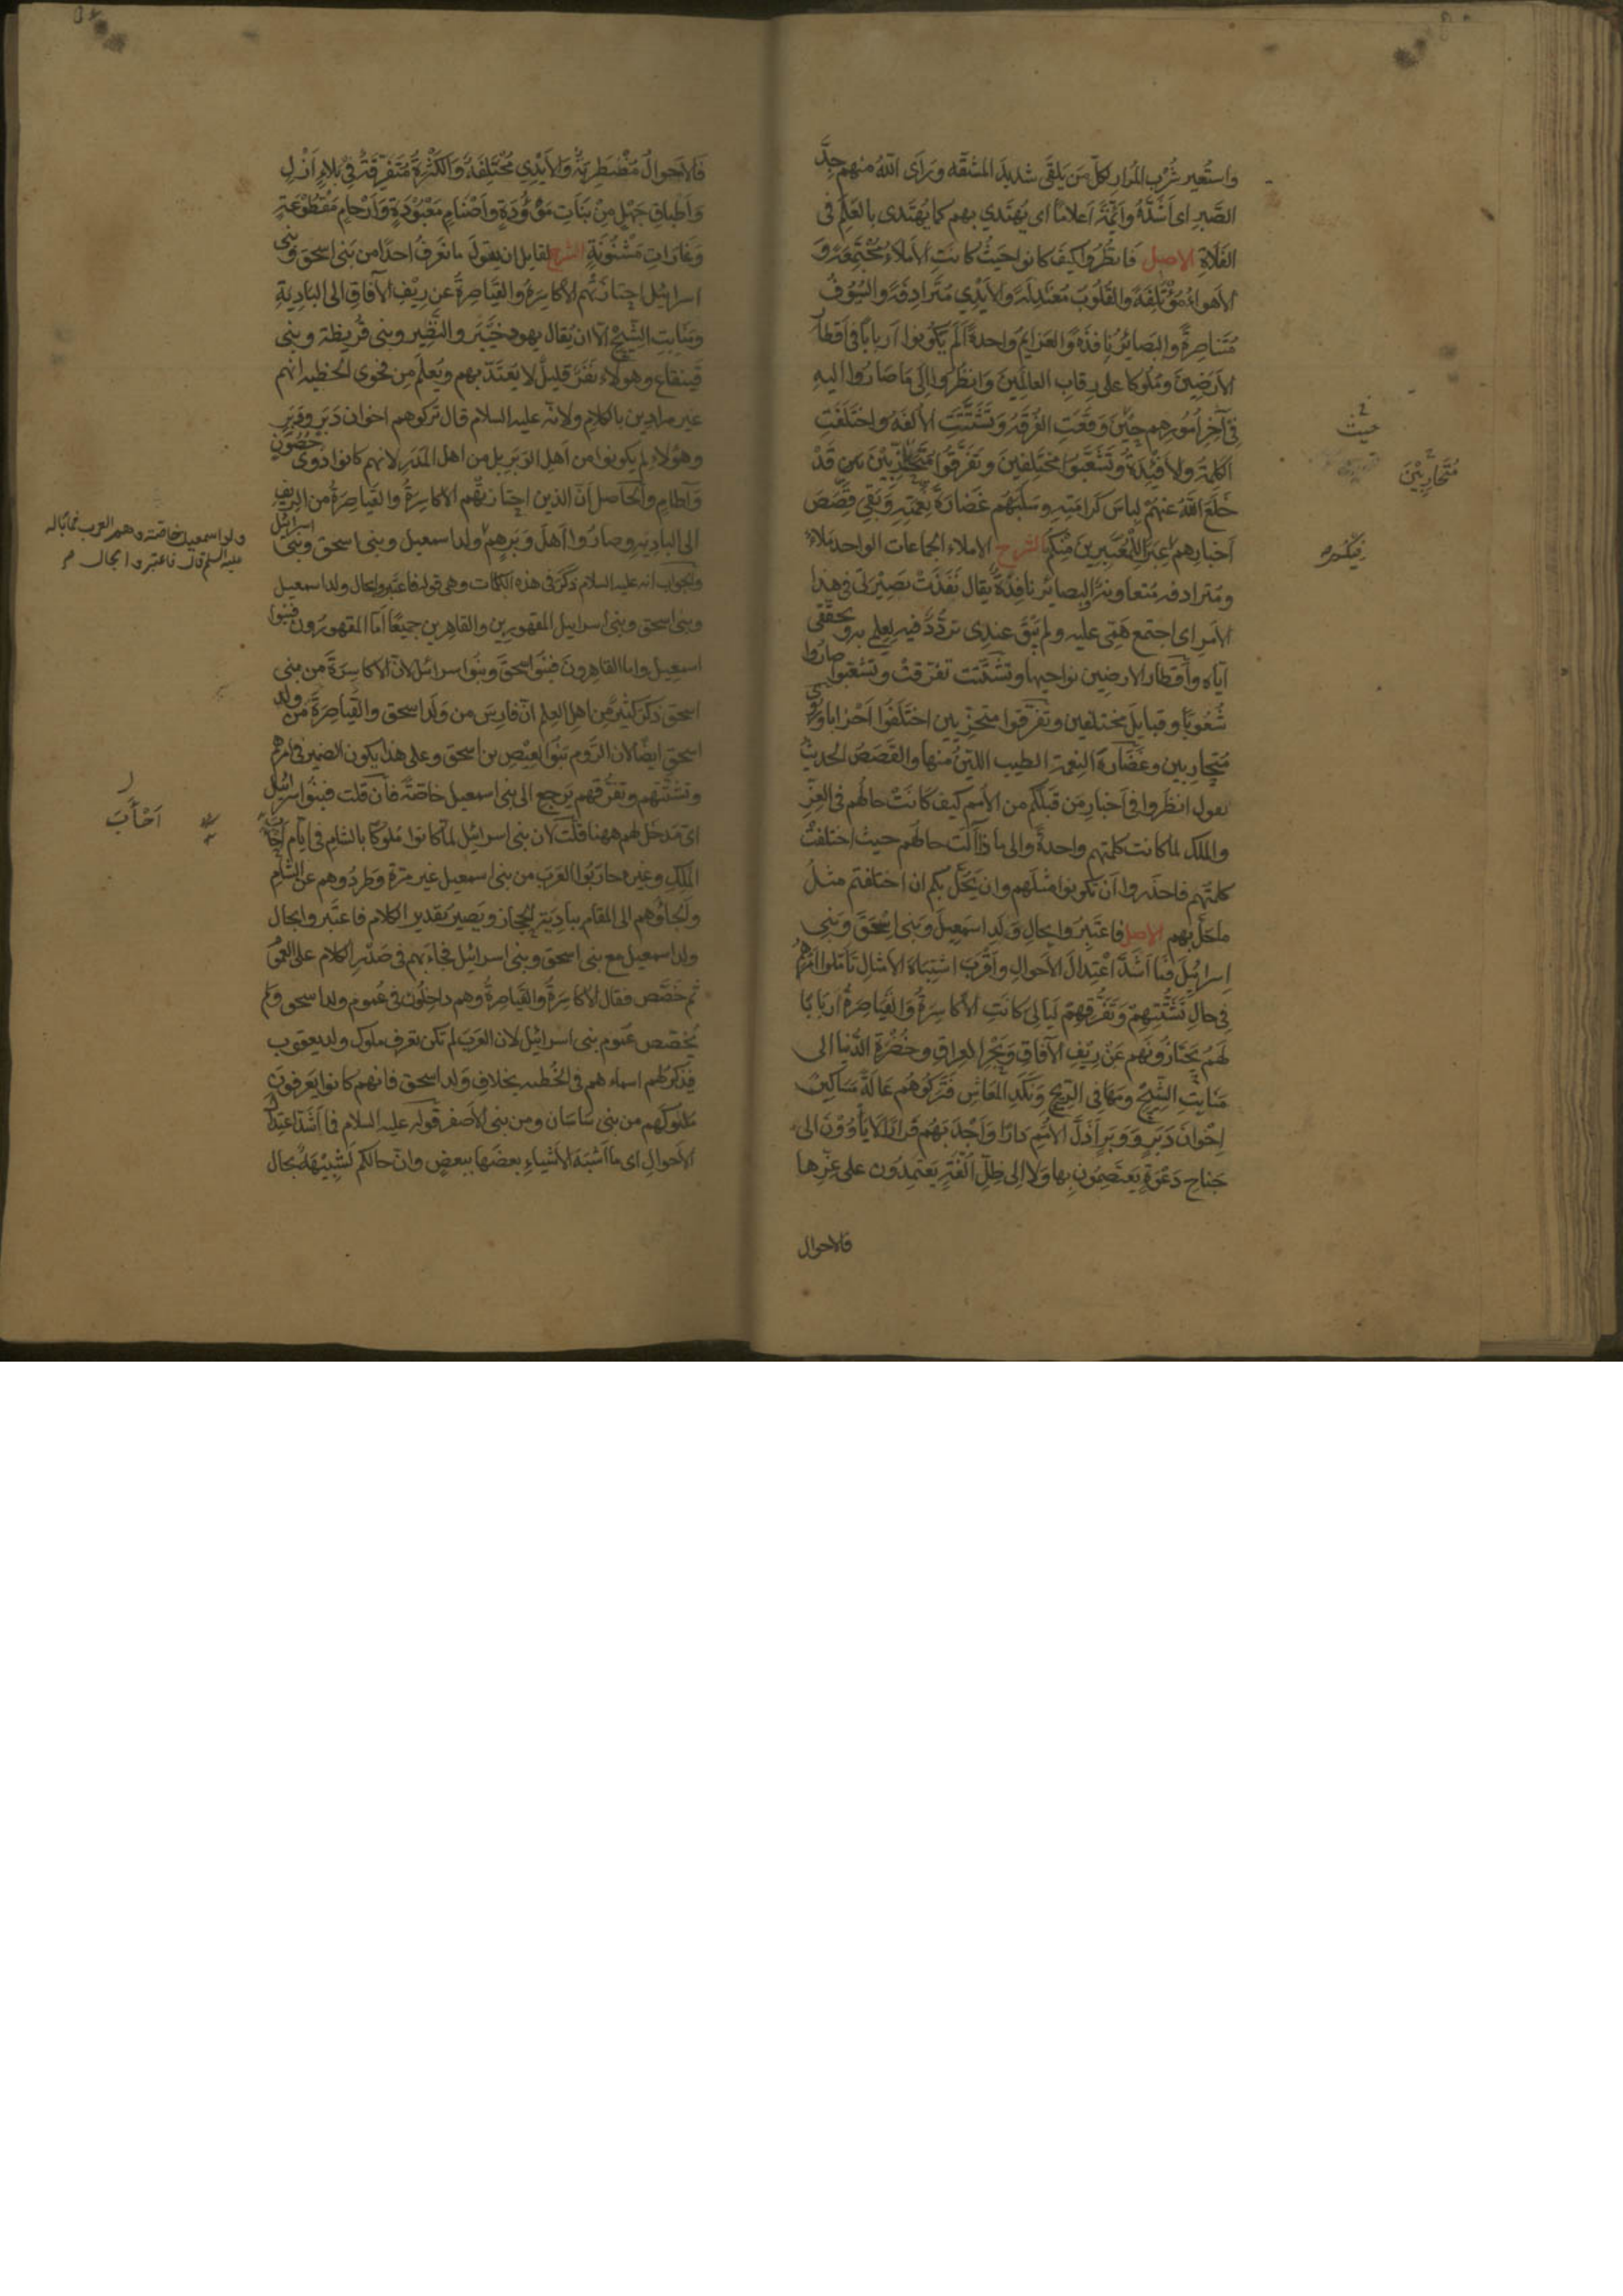 واستُعير شُرْب المُرار لكلّ مَن يَلقَى شديدَ المشقّه ورَاَى اللّهُ منهم جِدَّ
الصَّبرِ اى اَشَدَّهُ وائمَّةً اَعلامًا اى يُهتَدى بهم كما يُهتَدى بالعَلَم فى
الفَلاة الاصل فَانظُرُوا كيفَ كانوا حَيثُ كانَتِ الاَملاءُ مُجْتَمِعَةً وَ
الاَهواءُ مُؤتَلِفَةً والقُلوبُ مُعتَدِلَةً والاَيْدِى مُتَرادِفَةً والسُّيُوفُ
مُتَناصِرةً والبَصائرُ نافِذَةً والعَزايمُ واحدةً اَلَم يَكُونوا اَربابًا فى اَقطار
الاَرَضِينَ ومُلُوكا على رِقابِ العالَمِينَ وَانظُرُوا اِلَى مَا صَارُوا اليهِ
فِى آخِرِ اُمُورِهِم حِينَ وَقَعَتِ الفُرقَةُ وتَشَتَّتَتِ الاُلفَةُ واختَلَفَتِ
الكلمةُ والاَفئِدَةُ وتَشَعَّبُوا مُختَلِفِينَ وتَفَرَّقُوا مُتَحَزِّبِينَ قَدْ
خَلَعَ اللّهُ عنهُم لِباسَ كَرامَتِهِ وسَلَبَهُم غَضَارَةَ نِعمَتِهِ وَبَقِى قَصَصَ
اَخبارِهِم عِبَرًا لِلمُعتَبِرِينَ مِنكُم الشرح الاملاء الجماعات الواحد مَلاء
ومُترادفه مُتعاونة والبصائر نافِذَةً يقال نَفَذَتْ بَصِيْرَتى فى هذا
الاَمرِ اى اجتمع هَمّى عليه ولم يَبْقَ عندى تردُّدٌ فيه لعلمى به وتحقّقى
اياه واَقطار الارضين نواحيها وتشتَّتت تفرّقتْ وتشعّبوا صاروا
شُعُوبًا وقبايلَ مختلفين وتفرّقوا متحزّبين اختَلَفُوا اَحْزابا ورُوى
مُتحاربين وغَضَارةُ النعمة الطيب الليّنُ منها والقَصَصُ الحديثُ
يقول انظروا فى اَخبارِ مَن قَبلَكم من الاُمم كيف كانَتْ حالُهم فى العزّ
والملك لما كانت كلمتهم واحدةً والى ماذا آلَت حالهم حيث اختلفتْ
كلمتهم فاحذَروا اَنْ تكونوا مثلَهم وان يَحُلّ بكم ان اختلفتم مثلُ
ماحَلَّ بهم الاصل فاعتَبِرُوا بحالِ وَلَدِ اسمعِيلَ وَبَنى اِسْحَقَ وَبَنِى
اِسرائِيلَ فَمَا اَشَدَّ اعْتِدالَ الاَحوالِ واَقْرَبَ اشتِباهَ الاَمثالِ تَاَمّلوا اَمرَهُم
فِى حالِ تَشَتُّتِهِمْ وَتَفَرُّقِهِمْ لَيالِىَ كانَتِ الاَكاسِرَةُ وَالقَياصِرَةُ اَربابًا
لَهُمْ يَحْتَازُونَهُم عَنْ رِيْفِ الآفاقِ وَبَحْرِ العِراقِ وخُضْرَةِ الدُّنيا الى
مَنابِتِ الشّيْحِ ومَهافِى الرِّيحِ وَنَكَدِ المَعَاشِ فَتَرَكُوهُم عَالَةً مَساكِينَ
اِخْوانَ دَبَرٍ وَوَبَرٍ اَذَلَّ الاُمَمِ دارًا وَاَجْدَبَهُم قَرَارًا لَا يَأوُوْنَ الى
جَناحِ دَعْوَةٍ يَعتَصِمُونَ بِها وَلا اِلى ظِلِّ اُلْفَةٍ يَعتَمِدُون على عِزِّها
فالاحوال
حيث
مُتَحَارِبِيْنَ
فَالاَحوالُ مُضْطَرِبَةٌ وَالاَيْدِى مُخْتَلِفَةٌ وَالكَثْرَةُ مُتَفَرِّقَةٌ فِى بَلاءِ اَزْلٍ
وَاَطْباقِ جَهْلٍ مِنْ بَنَاتٍ مَوْؤُدَةٍ واَصْنامٍ مَعْبُوْدَةٍ وَاَرْحامٍ مَقْطُوْعَةٍ
وَغَارَاتٍ مَشْنُوْنَةٍ الشرح لقايل ان يقول ما نعرفُ احدًا من بَنى اسحق وبنى
اسرائيل احتازتْهُم الاَكاسِرَةُ والقَياصِرةُ عن رِيْفِ الآفاق الى البَادِيةِ
ومَنابِتِ الشّيْحِ الّا ان يُقال يهود خَيْبَر والنَّضِير وبنى قُرَيظة وبنى
قَينقاع وهولاء نَفَرٌ قليلٌ لا يُعتَدّ بهم ويُعلَم مِن فحوى الخطبة انهم
غير مرادين بالكلام ولانّه عليه السلام قال تركوهم اخوان دَبَرٍ ووَبَرٍ
وهؤلاء لم يكونوا من اَهلِ الوَبَرِ بل من اهل المَدَرِ لانهم كانوا ذَوِى حُصُونٍ
وَآطامٍ والحَاصل اَنّ الذين احتازتْهُم الاكاسِرَةُ والقَياصِرةُ من الريف
الى البادية وصارُوا اَهلَ وَبَرٍ هم ولد اسمعيل وبنى اسحق وبنى اسرائيل
والجواب انه عليه السلام ذكَرَ فى هذه الكلمات وهى قوله فاعتبروا بحال ولد اسمعيل
وبنى اسحق وبنى اسرائيل المقهورين والقاهرين جميعًا اَمّا المقهورُون فبنوا
اسمعيل واما القاهِرونَ فَبَنُوا اسحقَ وبَنُوا اسرائيل لانّ الاكاسِرَةَ من بنى
اسحق ذكرَ كثيرٌ مِن اهل العِلم انّ فارِسَ من وَلَد اسحق والقَياصِرَةَ من ولد
اسحق ايضًا لان الرُّوم بَنُوا العِيْصِ بن اسحق وعلى هذا يكون الضمير فى امرهم
وتشتّتهم وتفرُّقهم يَرجع الى بنى اسمعيل خاصّةً فان قلت فبنُوا اسرائيل
اىّ مَدخَل لهم ههنا قلتُ لان بنى اسرائيل لمّا كانوا مُلوكًا بالشام فى ايّام
الملِك وغيره حارَبُوا العَرَبَ من بنى اسمعيل غير مرّة وطردُوهم عن الشّام
والجَأُوهم الى المقام ببادِيَة الحجاز ويَصيرُ تقديرُ الكلام فاعتَبِروا بحال
ولد اسمعيل مع بنى اسحق وبنى اسرائيل فجاءَ بهم فى صَدْرِ الكلام على العموم
ثم خَصَّص فقال الاكاسِرَةُ والقَياصِرةُ وهم داخِلُون فى عُموم ولد اسحق ولم
يُخصّص عُموم بنى اسرائيل لان العَرَبَ لم تكن تعرف ملوك ولد يعقوب
فيَذكُرَ لهم اسماءهم فى الخُطبه بخلافِ وَلَد اسحق فانهم كانوا يَعرفونَ
مُلوكَهم من بنى سَاسَان ومن بنى الاَصفر قوله عليه السلام فما اَشَدّ اعتِدالَ
الاَحوالِ اى ما اَشبَهَ الاَشياءِ بعضَها ببعضٍ وانّ حالكم لَشَبِيْهَةٌ بحال
ولد اسمعيل خاصّة وهم العرب
عليه السلم قال فاعتبروا بحال
اَخْاَبَ